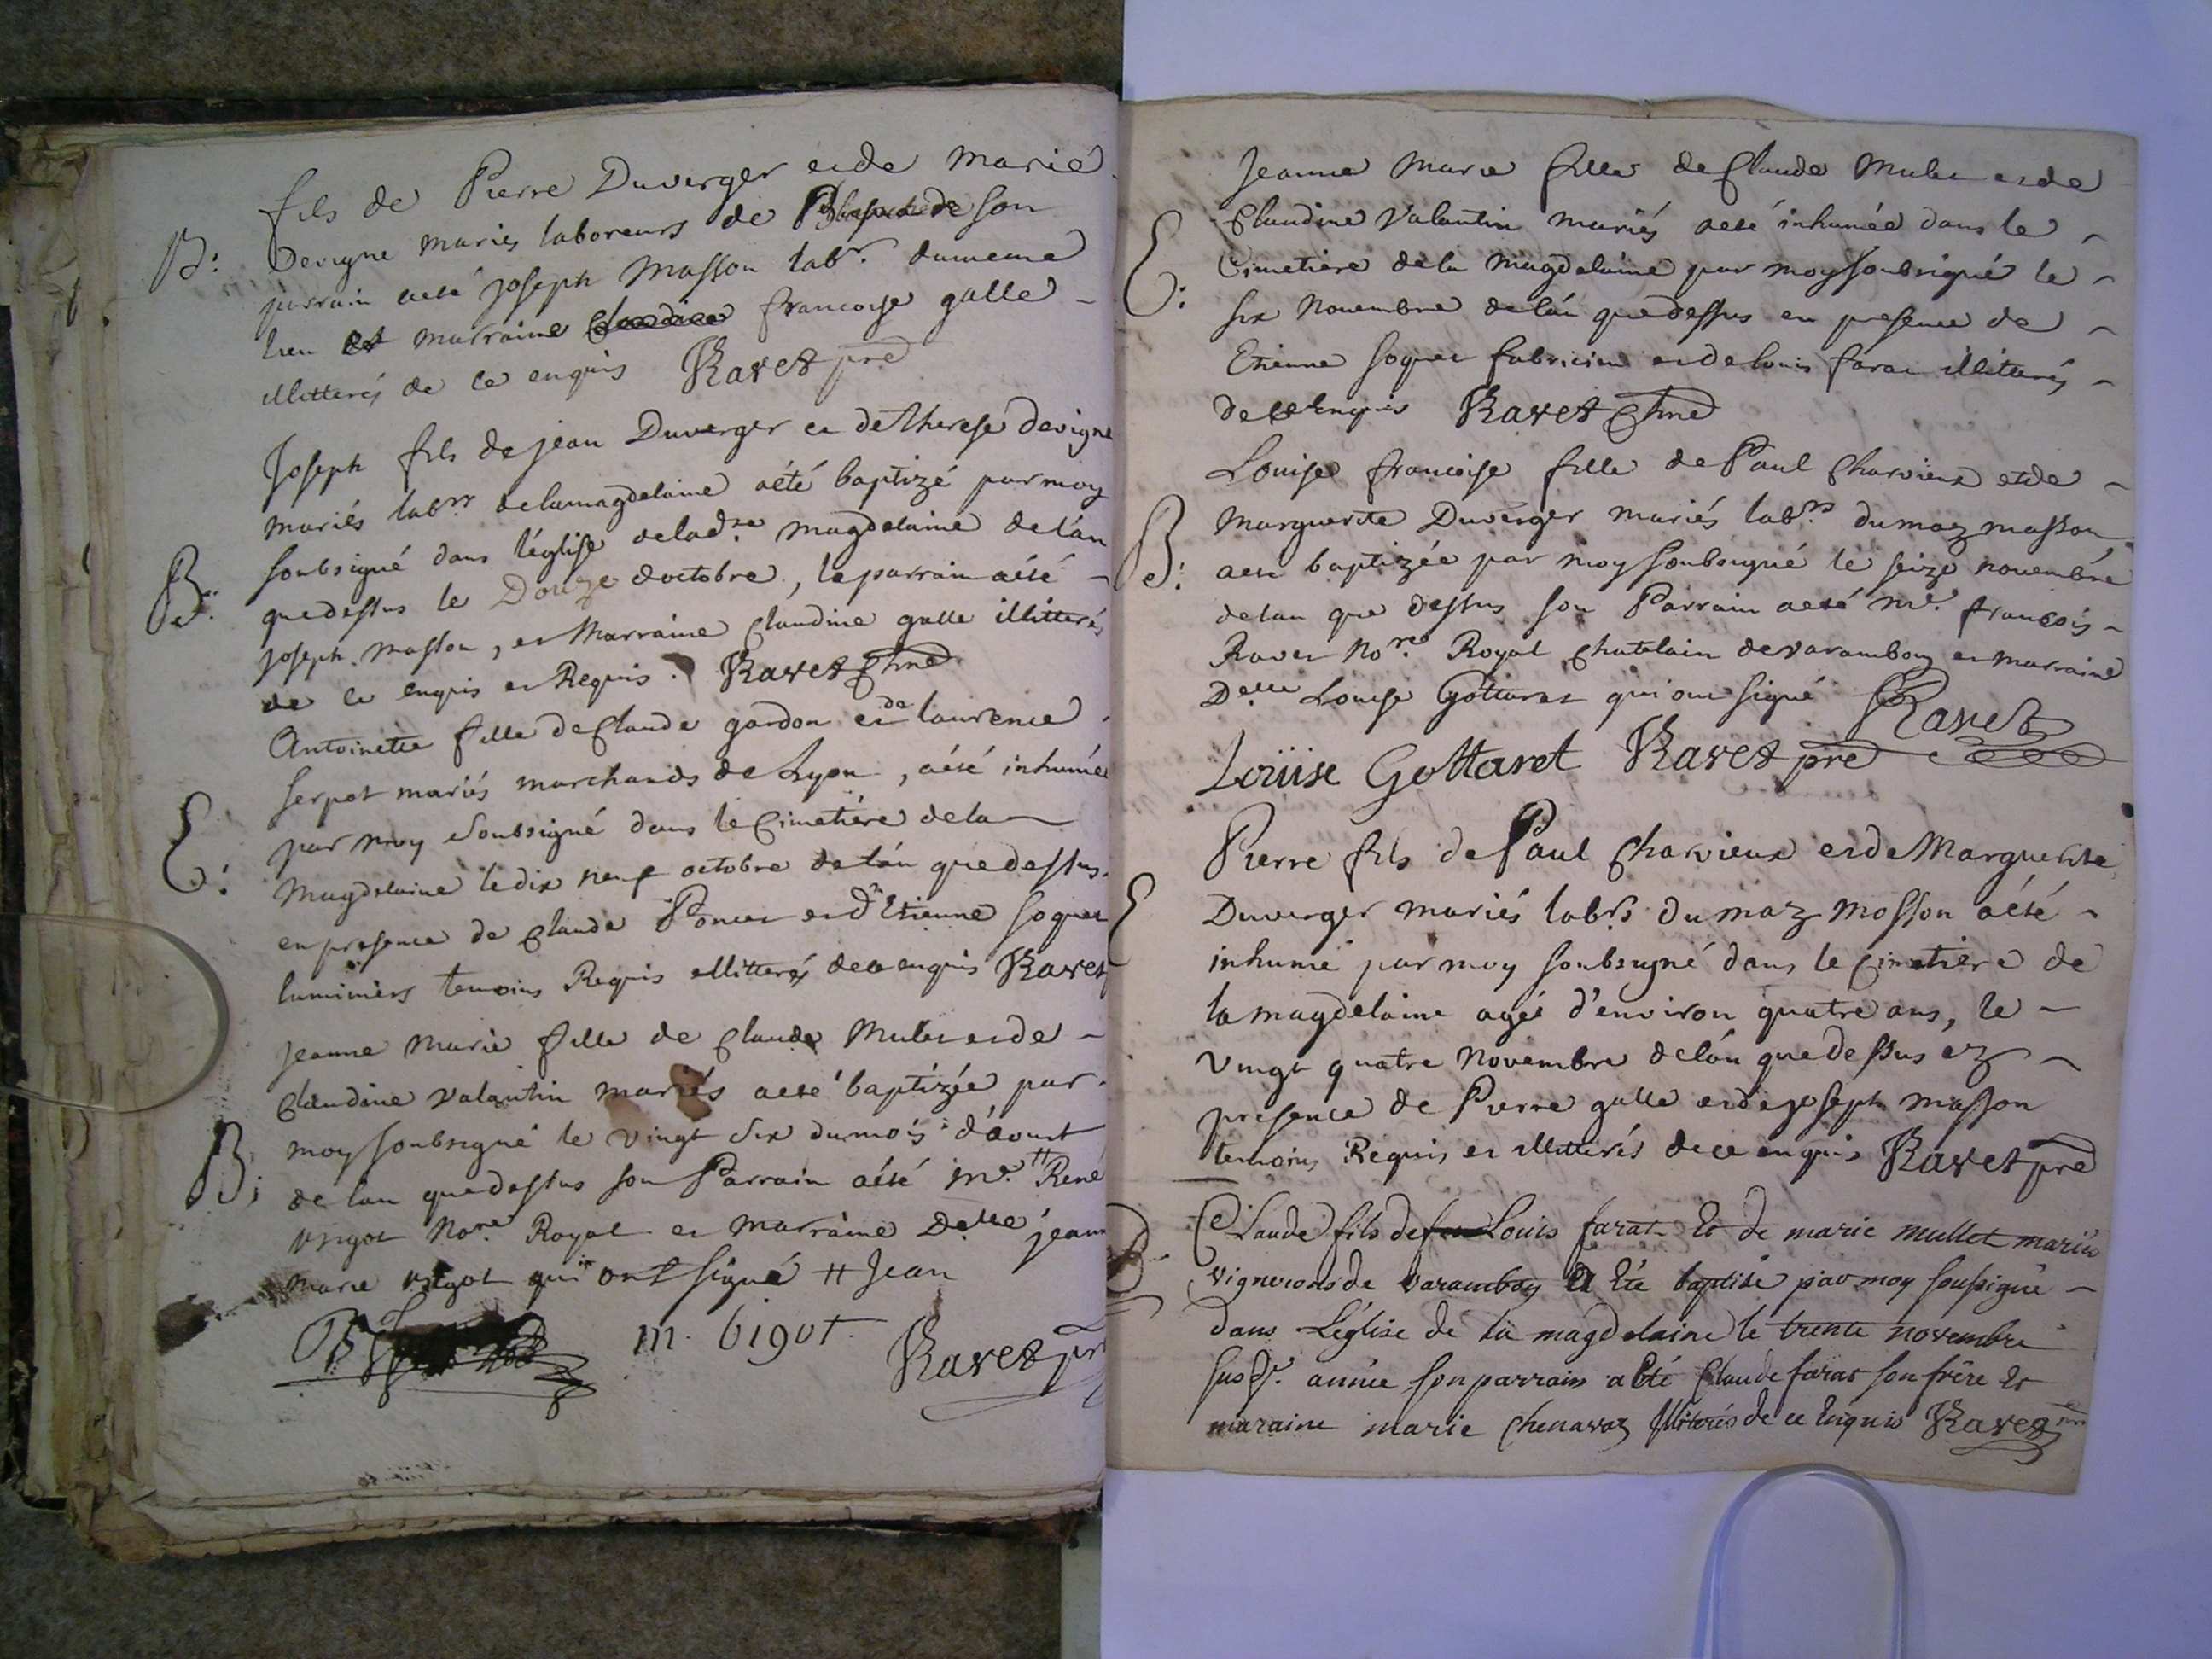 fils de Pierre Duverger et de marie
B:
Devigne mariés laboreurs de son
parrain aeté joseph Masson labr. dumeme
lieu et marraine Claudine francoise galle -
illitterés de ce enquis Ravet pre
Joseph fils de jean Duverger et de Therese devigne
mariés labrs delamagdelaine aété baptizé parmoy
soubsigné dans l'église delade. magdelaine de l'an
B.
quedessus le Douze doctobre, le parrain aété -
joseph masson, et Marraine Claudine galle illitterés
de ce enquis et Requis. Ravet pre
Antoinette fille de Claude gardon et de laurence
serpot mariés marchands de Lyon, aété inhumée
E:
par moy soubsigné dans le Cimetiére dela
Magdelaine le dix neuf octobre de l'an quedessus
en presence de Claude Poncet et d'Etienne soquet
luminiers temoins Requis illitterés de ce enquis Ravet
Jeanne Marie fille de Claude Mulet et de -
Claudine valantin mariés aeté baptizée par
B;
moy soubsigné le vingt six dumois d'aoust
de lan quedessus son Parrain aété me. # René
vigot nore. Royal et marraine Delle jeanne
marie vigot qui ont signé # Jean
m. bigot. Ravet pre
Jeanne Marie fille de Claude Mulet et de
Claudine valantin mariés aeté inhumée dans le -
E:
Cimetiere dela magdelaine par moy soubsigné le -
six Novembre de l'an quedessus en presence de -
Etienne soquet fabricien et de louis farat illitterés -
de ce enquis Ravet pre
Louise francoise fille de Paul Charvieux et de -
B:
Marguerite Duverger mariés labrs. du maz masson
aeté baptizée par moy soubsigné le seize novembre
delan que dessus son Parrain aeté me. francois -
Ravet nore. Royal Chatelain de varambon et marraine
Delle Louise Gottaret qui ont signé Ravet
Loüise Gottaret Ravet pre
Pierre fils de Paul Charvieux et de Marguerite
E
Duverger mariés labrs. du maz Masson aété -
inhumé par moy soubsigné dans le Cimetiére de
la magdelaine agé d'environ quatre ans, le -
vingt quatre Novembre de l'an que dessus ez -
presence de Pierre galle et de joseph masson
temoins Requis et illitterés de ce enquis Ravet pre
B
Claude fils de Louis farat Et de marie mullet mariés
vignerons de varambon A Eté baptisé par moy soussigné -
dans L'église de la magdelaine le trente novembre
susd. année son parrain a Eté Claude farat son frère Et
maraine marie Chenavaz illiterés de ce Enquis Ravet pre